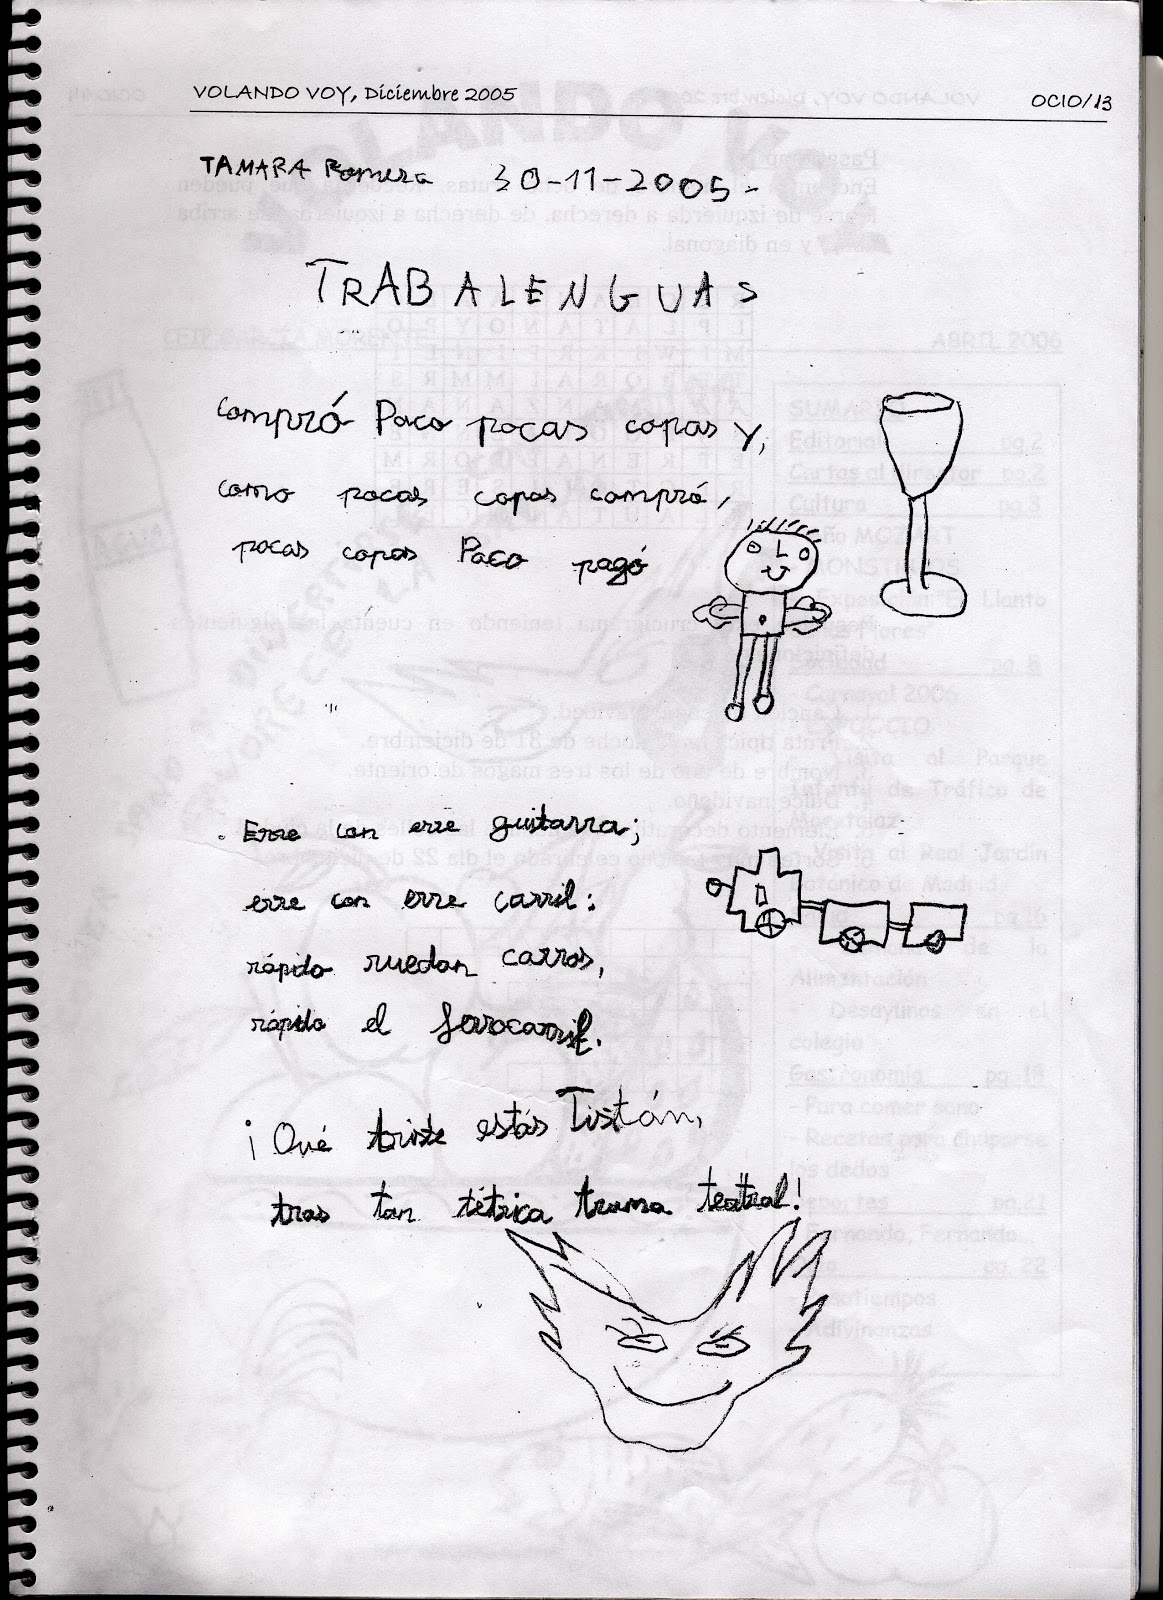 VOLANDO VOY, Diciembre 2005 OCIO/13
TAMARA Romera 30-11-2005-
TRABALENGUAS
compró Paco pocas copas y,
como pocas copas compró,
pocas copas Paco pagó
. Erre con erre guitarra;
erre con erre carril:
rápido ruedan carros,
rápido el ferrocarril.
¡Qué triste estás Tistán,
tras tan tétrica trama teatral!